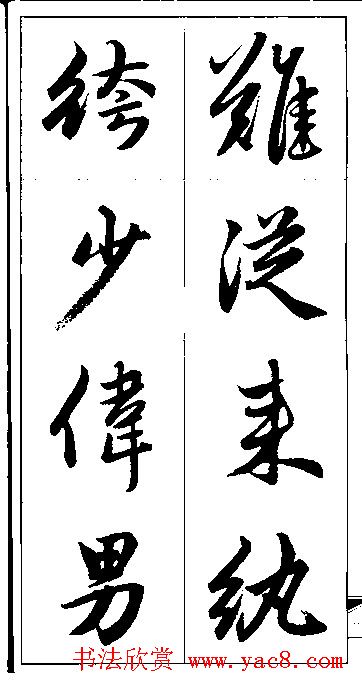 難從来紈
絝少偉男
书法欣赏 www.yac8.com